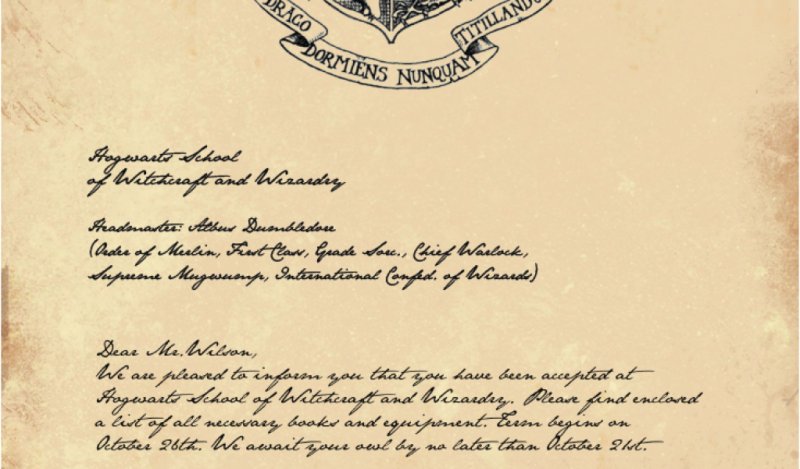 DRACO DORMIENS NUNQUAM TITILLANDUS
Hogwarts School
of Witchcraft and Wizardry
Headmaster: Albus Dumbledore
(Order of Merlin, First Class, Grade Sorc., Chief Warlock,
Supreme Mugwump, International Confed. of Wizards)
Dear Mr.Wilson,
We are pleased to inform you that you have been accepted at
Hogwarts School of Witchcraft and Wizardry. Please find enclosed
a list of all necessary books and equipment. Term begins on
October 26th. We await your owl by no later than October 21st.